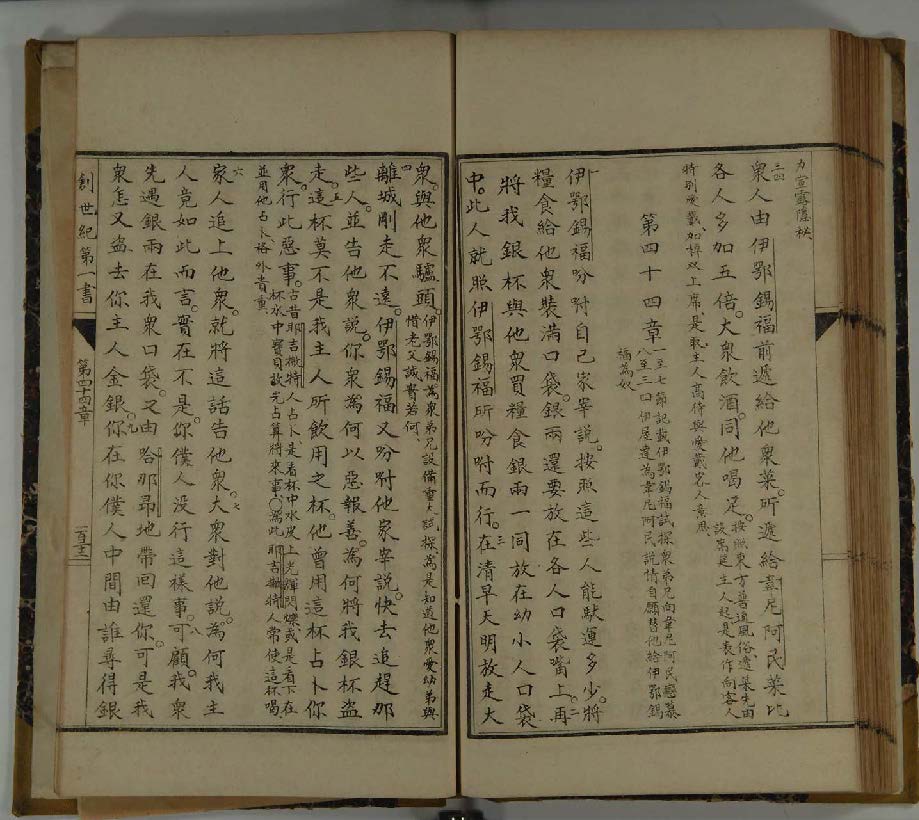 力宣露隱秘
三四
衆人由伊鄂錫福前遞給他衆菜。所遞給韋尼阿民菜比
各人多加五倍。大衆飲酒。同他喝足。按照東方普通風俗遞菜先由
設筵主人起是表作向客人
特別愛戴如掉双上席是取主人高待與愛戴客人意思
第四十四章 一至七節記載伊鄂錫福試探衆弟兄向韋尼阿民戀慕
八至三四伊屋達為韋尼阿民說情自願替他給伊鄂錫
福為奴
一伊鄂錫福吩咐自己家宰說。按照這些人能馱運多少。將
糧食給他衆裝滿口袋。銀兩還要放在各人口袋嘴上。二再
將我銀杯與他衆買糧食銀兩一同放在幼小人口袋
中。此人就照伊鄂錫福所吩咐而行。三在清早天明放走大
衆。與他衆驢頭。伊鄂錫福為衆弟兄設備重大試探為是知道他衆愛幼弟與
惜老父誠實若何、
四離城剛走不遠。伊鄂錫福又吩咐他家宰說。快去追趕那
些人。並告他衆說。你衆為何以惡報善。為何將我銀杯盜
走。五這杯莫不是我主人所飲用之杯。他曾用這杯占卜你
衆。行此惡事。古昔耶吉撒特人占卜、是看杯中水皮上光輝閃爍或是看下在
杯水中寶貝故先占算將來事、為此耶吉撒特人常使這杯喝
並用他占卜、格外貴重、
六家人追上他衆。就將這話告他衆。七大衆對他說。為何我主
人竟如此而言。實在不是。你僕人没行這樣事。八可顧。我衆
先遇銀兩在我衆口袋。又由哈那昂地帶回還你。可是我
衆怎又盜去你主人金銀。九你在你僕人中間由誰尋得銀
創世紀第一書
第四十四章